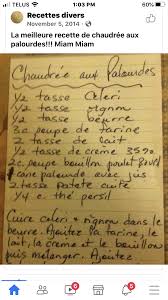 TELUS 1:03 PM 63%
Recettes divers
November 5, 2014
La meilleure recette de chaudrée aux
palourdes!!! Miam Miam
Chaudrée aux Palourdes
1/2 tasse Celeri
1/2 tasse oignon
1/2 tasse beurre
3c soupe de farine
2 tasse de lait
1 tasse de creme 35%
2c. soupe bouillon poulet
cane palourde avec jus
2 tasse patate cuite
1/4 c thé persil
Cuire celeri + oignon dans le
beurre. Ajoutez la farine, le
lait, la creme et le bouillon
puis mélanger. Ajoutez